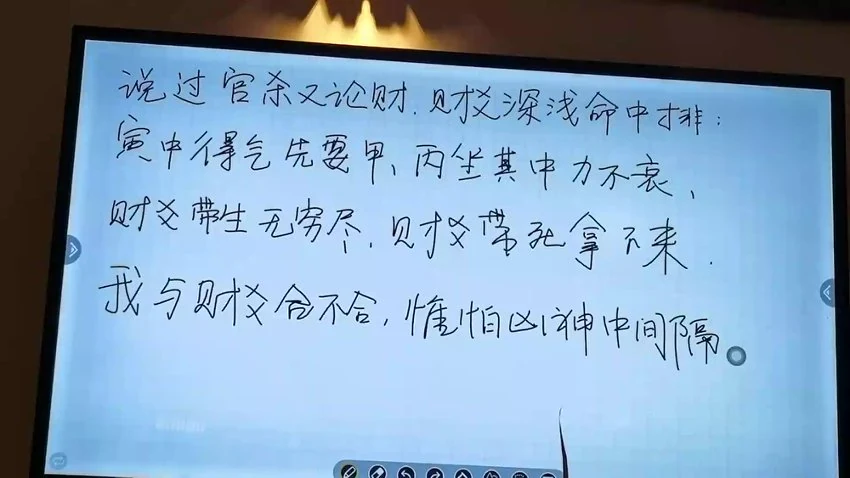 说过官杀又论财.财爻深浅命中排:
寅中得气先要甲、丙坐其中力不衰、
财爻带生无穷尽.财爻带死拿不来.
我与财爻合不合,惟怕凶神中间隔。